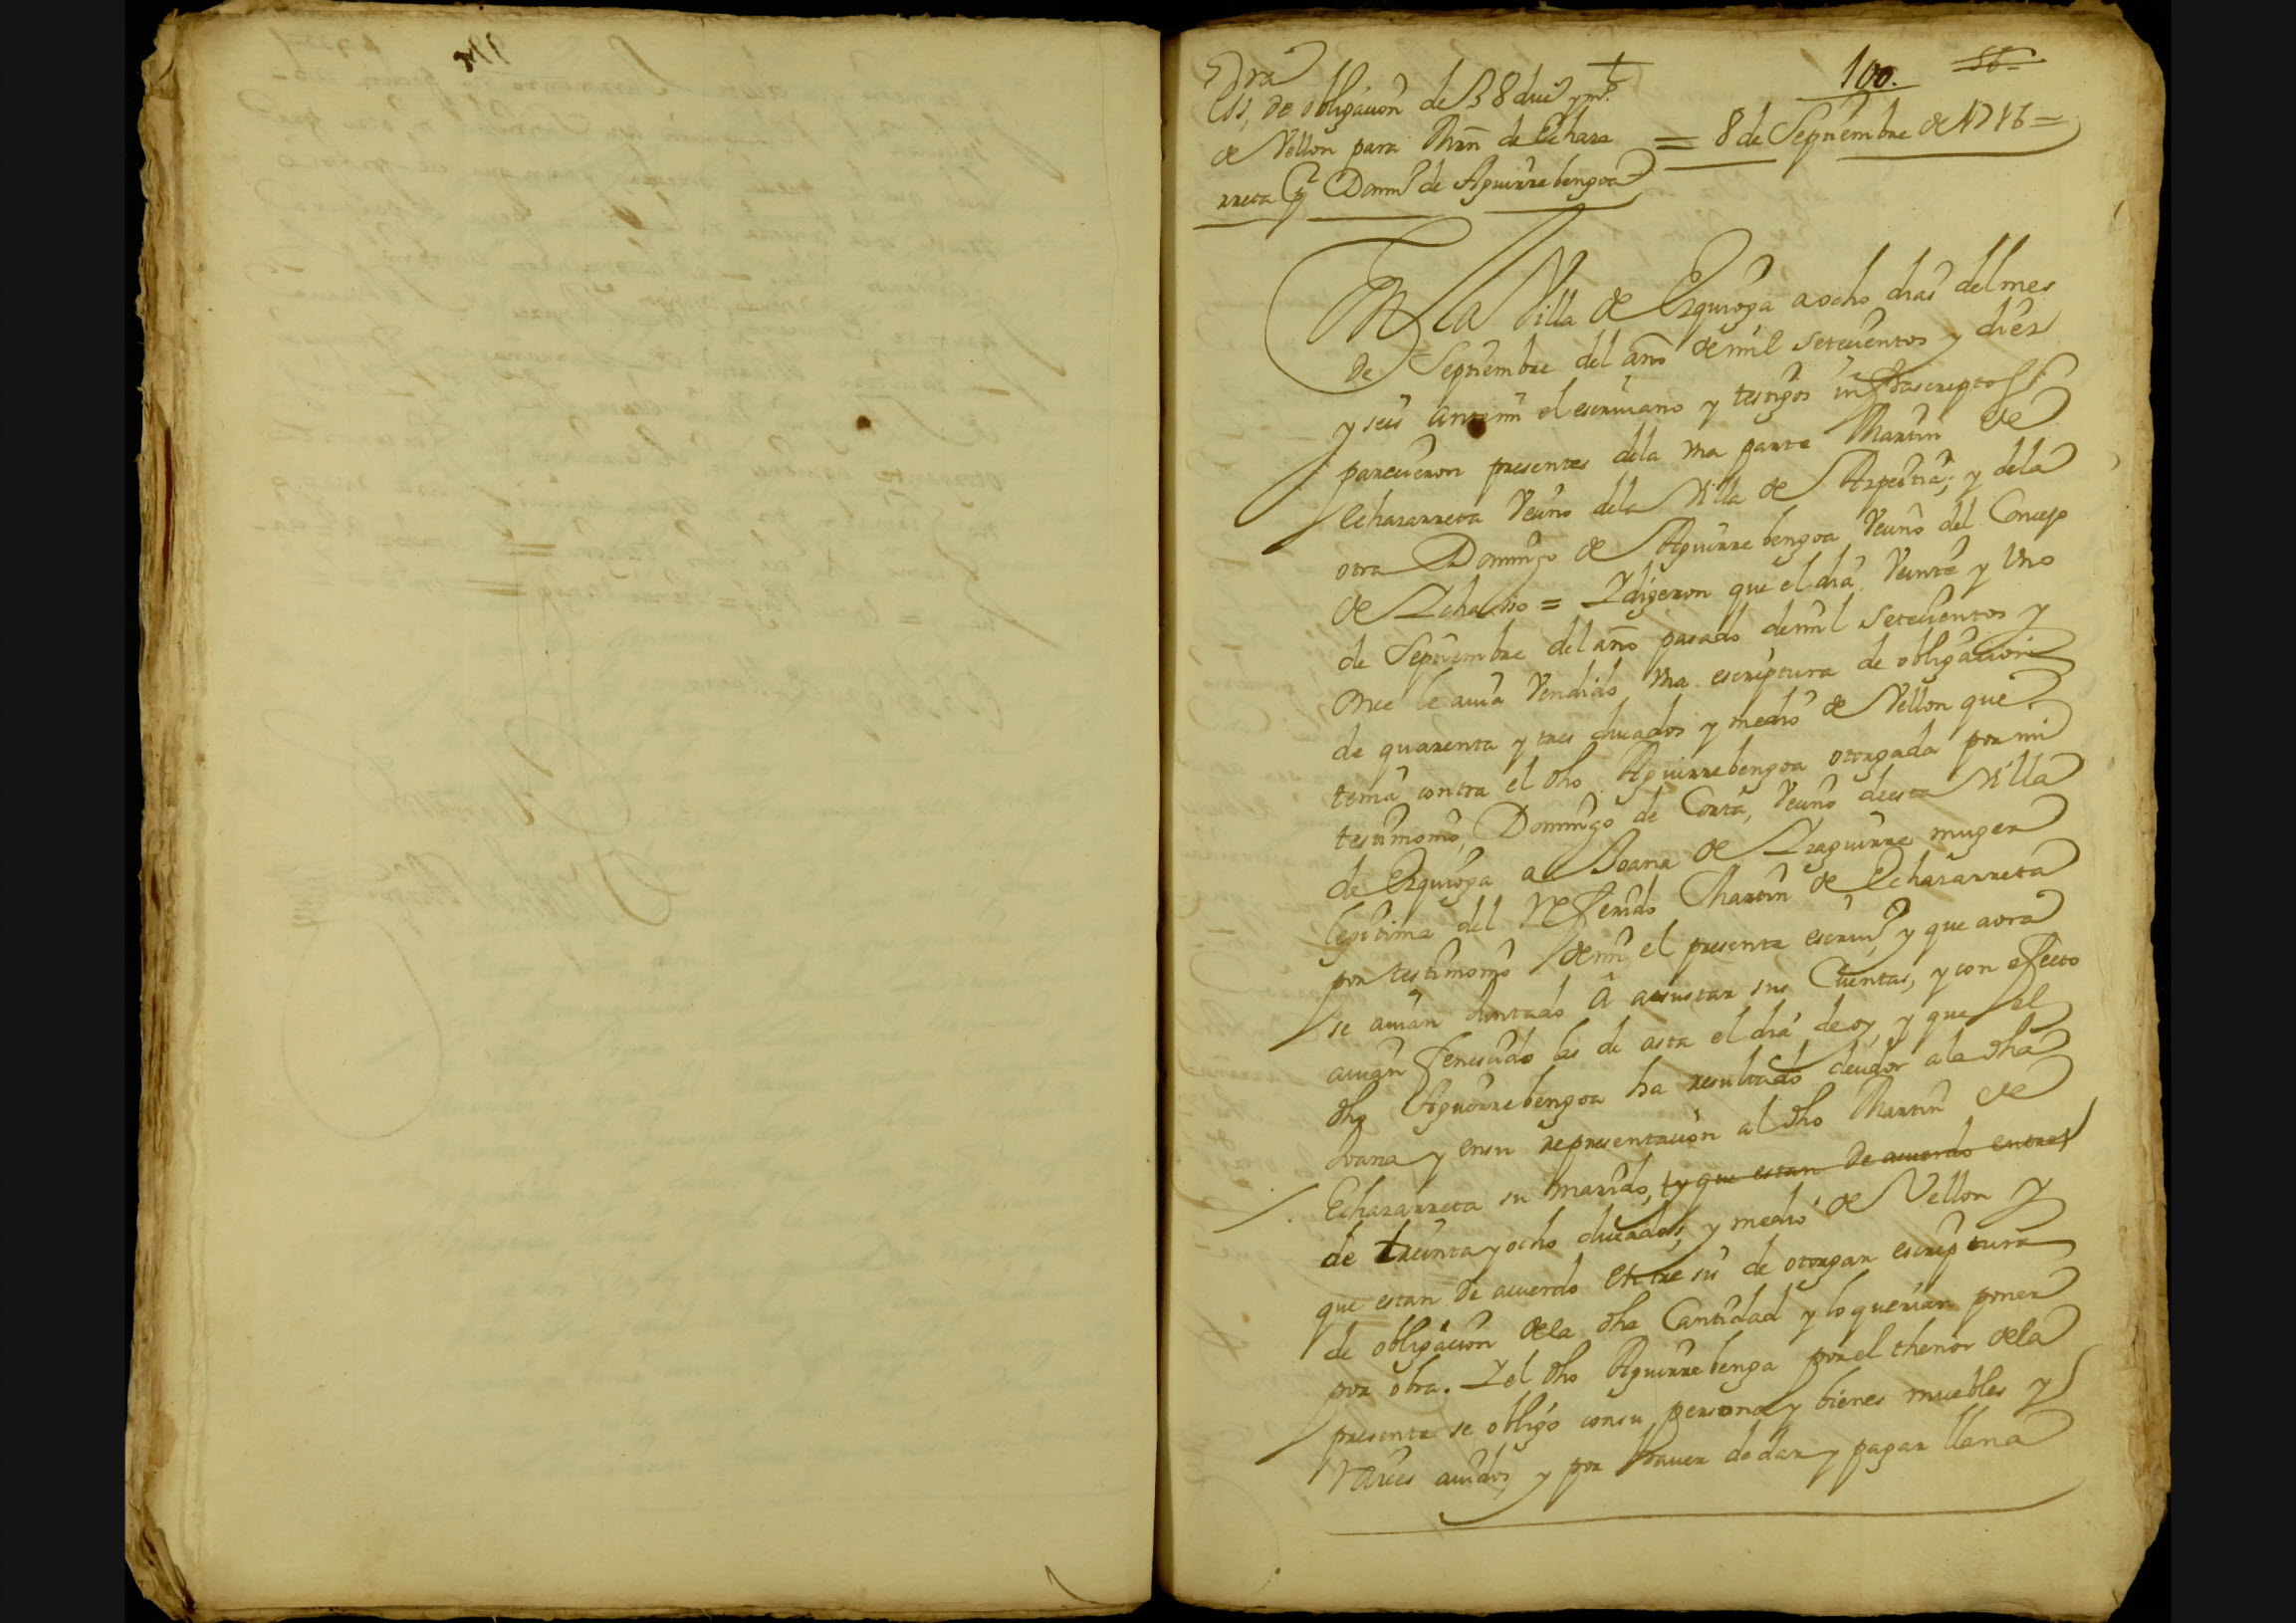 100.
Es.ra de obligacion de 38 duc.s y m.o
de Vellon para Mrn de Echaza
rreta C.a Dom.o de Aguirrebengoa
= 8 de Septiembre de 1716 =
En La Villa de Ezquioga a ocho dias del mes
de Septiembre del año de mil setecientos y diez
y seis ante mi el escriuano y testigos infrascriptos
parecieron presentes dela vna parte Martin de
Echazarreta Vecino dela Villa de Azpeitia; y dela
otra Domingo de Aguirrebengoa Vecino del Concejo
de Ichasso = Y digeron que el dia Veinte y vno
de Septiembre del año pasado de mil setecientos y
once le auia Vendido vna escriptura de obligacion
de quarenta y tres ducados y medio de Vellon que
tenia contra el dho Aguirrebengoa otorgada por mi
testimonio, Domingo de Corta, Vecino de esta Villa
de Ezquioga a Joana de Izaguirre muger
legitima del Referido Martin de Echazarreta
por testimonio de mi el presente escriu.o y que aora
se auian Juntado â ajustar sus Cuentas, y con efecto
auian fenescido las de asta el dia de oy, y que el
dho Aguirrebengoa ha resultado deudor ala dha
Joana y en su representacion al dho Martin de
Echazarreta su marido, y que estan de acuerdo entre s
de treinta y ocho ducados, y medio de Vellon y
que estan de acuerdo entre si de otorgar escriptura
de obligacion dela dha Cantidad y lo querian poner
por obra. Y el dho Aguirrebenga por el thenor dela
presente se obligó con su persona y bienes muebles y
raices auidos, y por hauer de dar y pagar llana